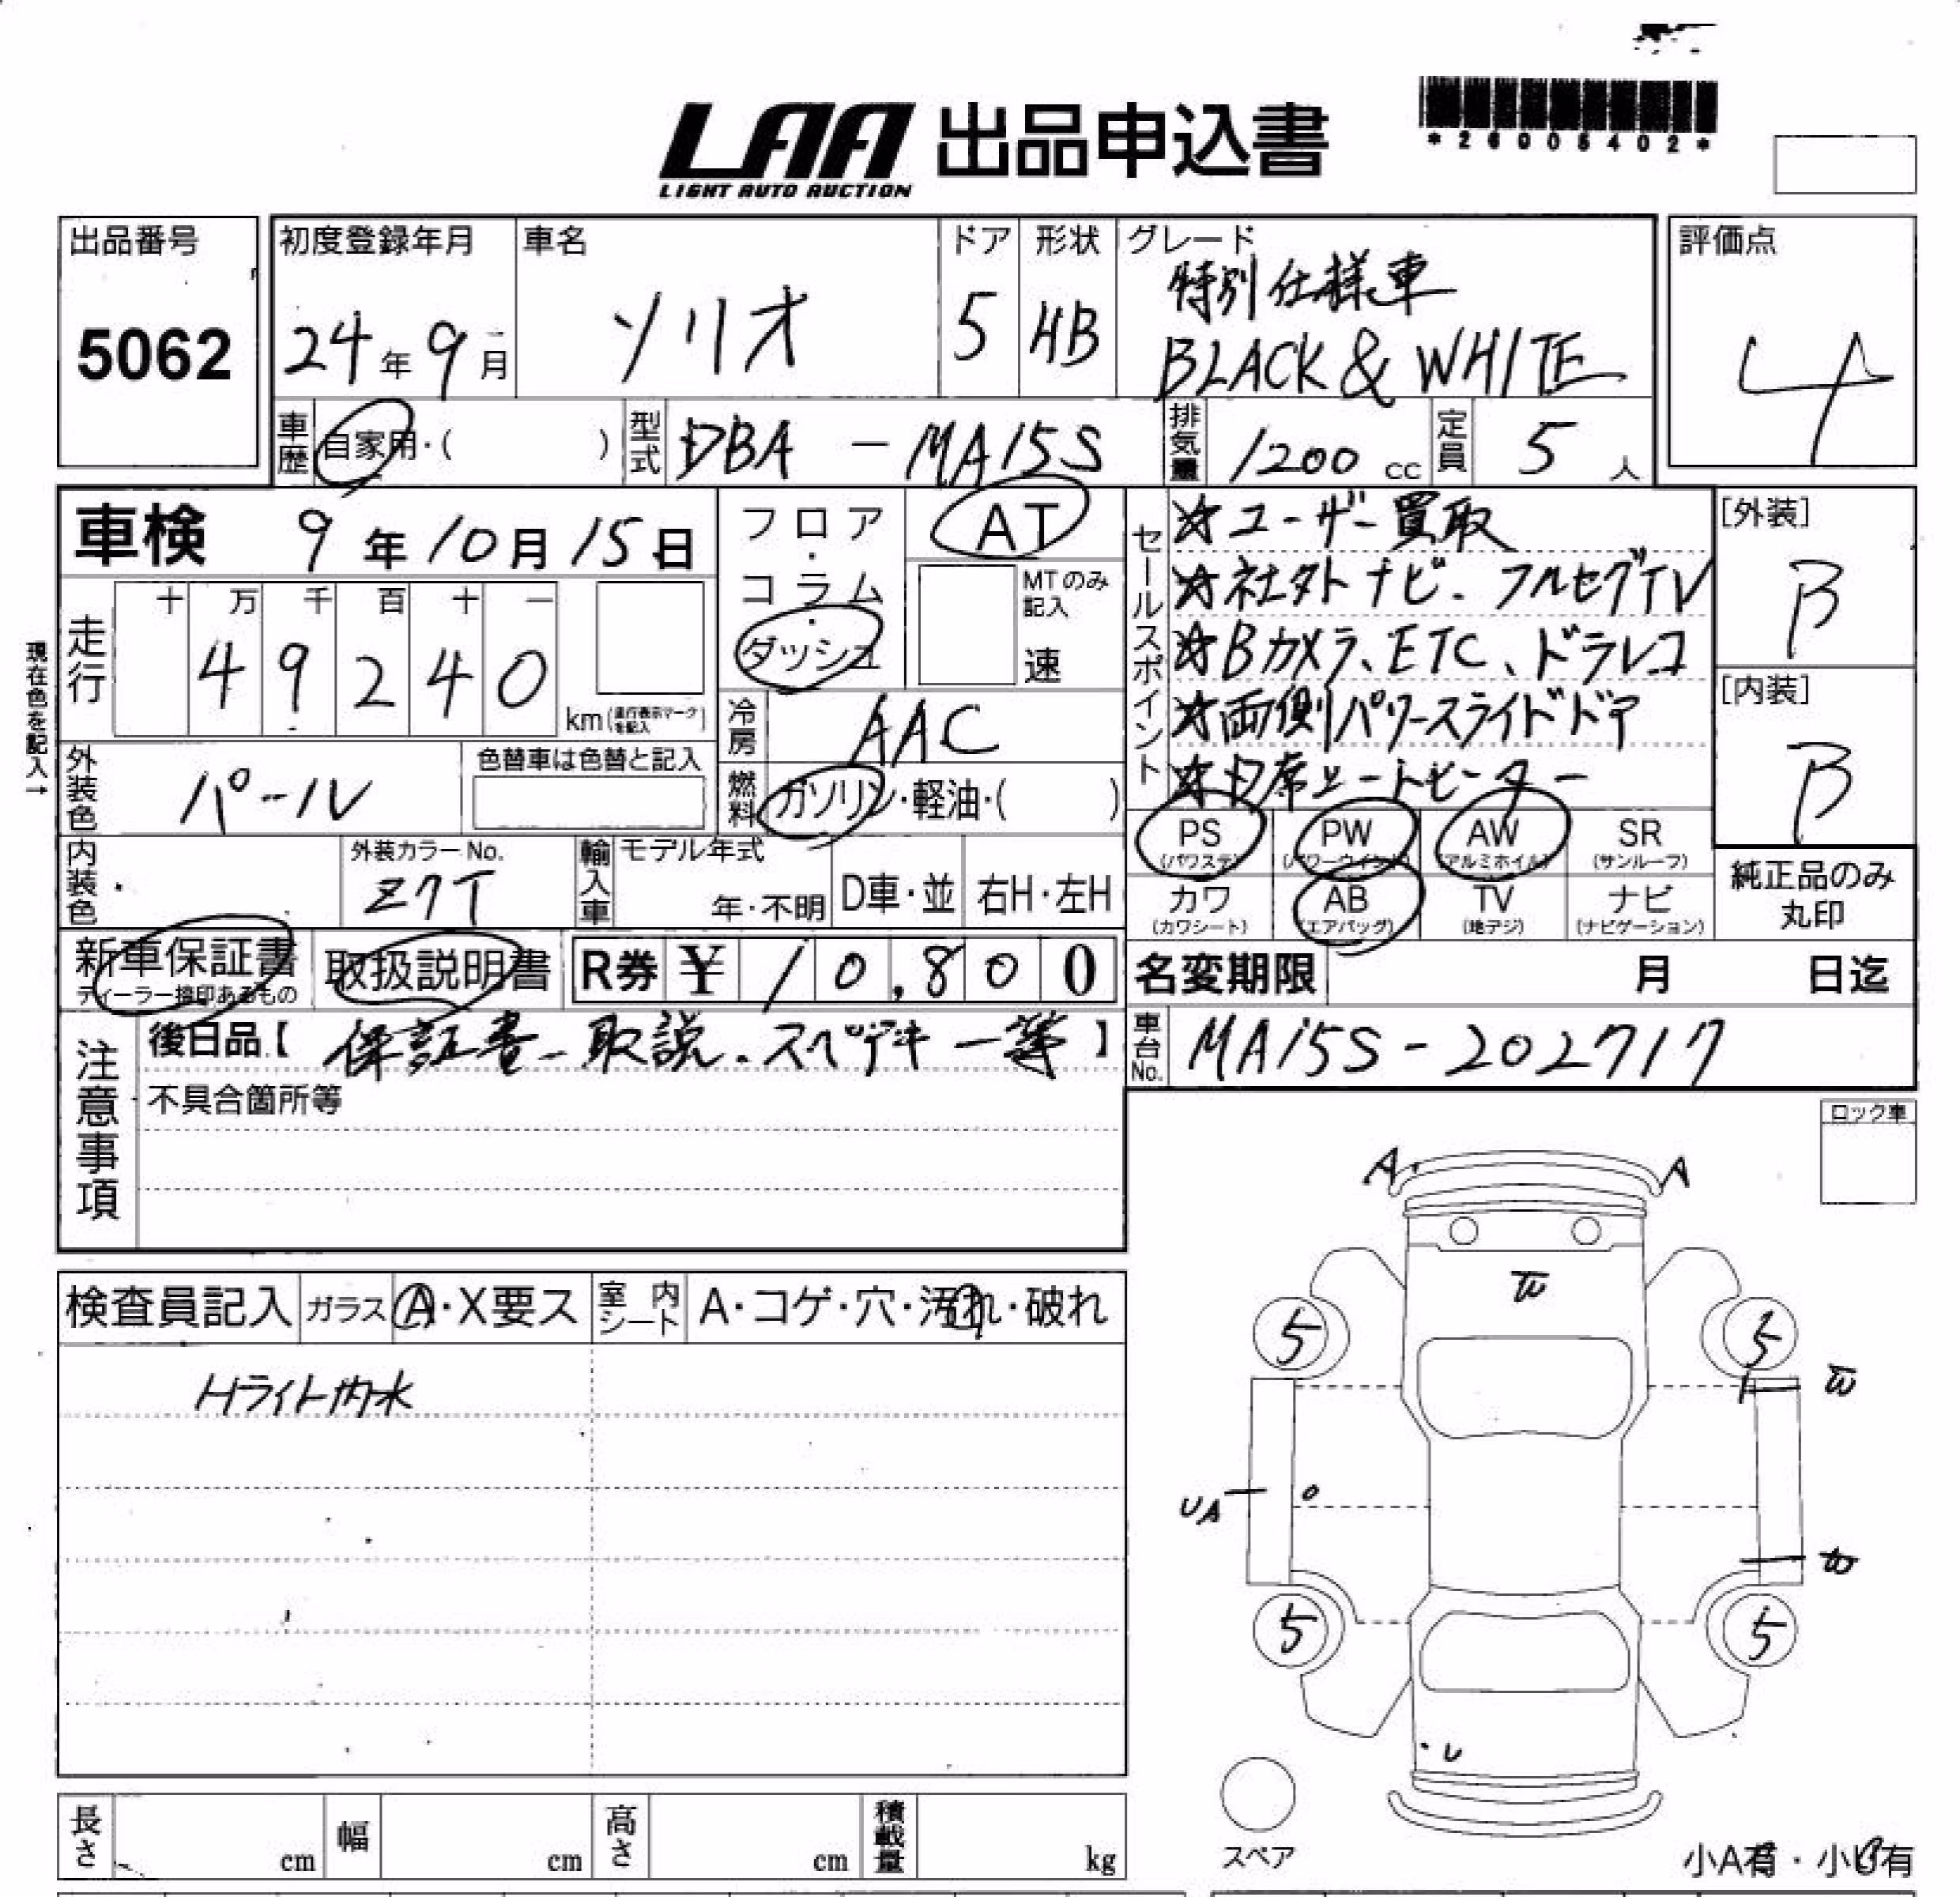 LAA 出品申込書
LIGHT AUTO AUCTION
*26005402*
出品番号
5062
初度登録年月
24年9月
車名
ソリオ
ドア
5
形状
HB
グレード
特別仕様車
BLACK & WHITE
評価点
4
車歴
自家用・( )
型式
DBA - MA15S
排気量
1200 cc
定員
5 人
車検 9年10月15日
現在色を記入→
走行
十 万 千 百 十 一
4 9 2 4 0
km(走行表示マークを記入)
フロア・コラム・ダッシュ
AT
MTのみ記入
速
冷房
AAC
燃料
ガソリン・軽油・( )
外装色
パール
色替車は色替と記入
内装色
外装カラーNo.
Z7T
輸入車
モデル年式
年・不明
D車・並
右H・左H
セールスポイント
☆ユーザー買取
☆社外ナビ、フルセグTV
☆Bカメラ、ETC、ドラレコ
☆両側パワースライドドア
シートヒーター
[外装]
B
[内装]
B
PS
(パワステ)
PW
(パワーウインド)
AW
(アルミホイル)
SR
(サンルーフ)
カワ
(カワシート)
AB
(エアバッグ)
TV
(地デジ)
ナビ
(ナビゲーション)
純正品のみ
丸印
新車保証書
ディーラー捺印あるもの
取扱説明書
R券 ¥10,800
名変期限 月 日迄
注意事項
後日品【保証書、取説、スペアキー等】
不具合箇所等
車台No.
MA15S-202717
ロック車
検査員記入
ガラス
A・X要ス
室内シート
A・コゲ・穴・汚れ・破れ
Hライト内水
A
A
W
5
5
W
UA
W
5
5
U
スペア
小A有・小U有
長さ
cm
幅
cm
高さ
cm
積載量
kg